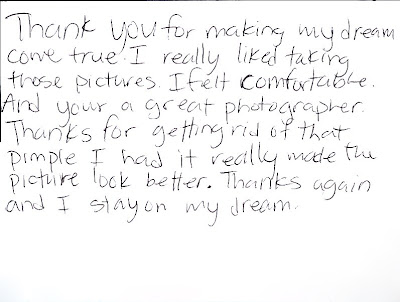 Thank you for making my dream
come true. I really liked taking
those pictures. I felt comfortable.
And your a great photographer.
Thanks for getting rid of that
pimple I had it really made the
picture look better. Thanks again
and I stay on my dream.